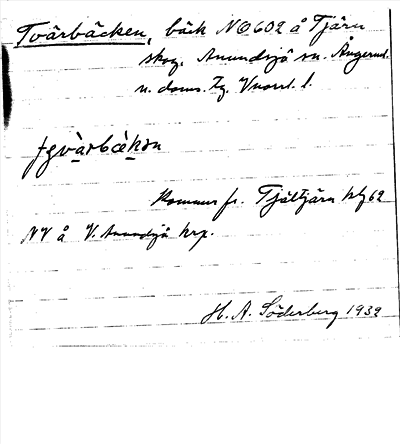 Tvärbäcken, bäck NO602 å Tjärn
skog, Anundsjö sn. Ångerml.
n. doms. tg. Vnorrl. l.
Kommer fr. Tjältjärn htg 62
NV å V. Anundsjö krp.
H. A. Söderberg 1932